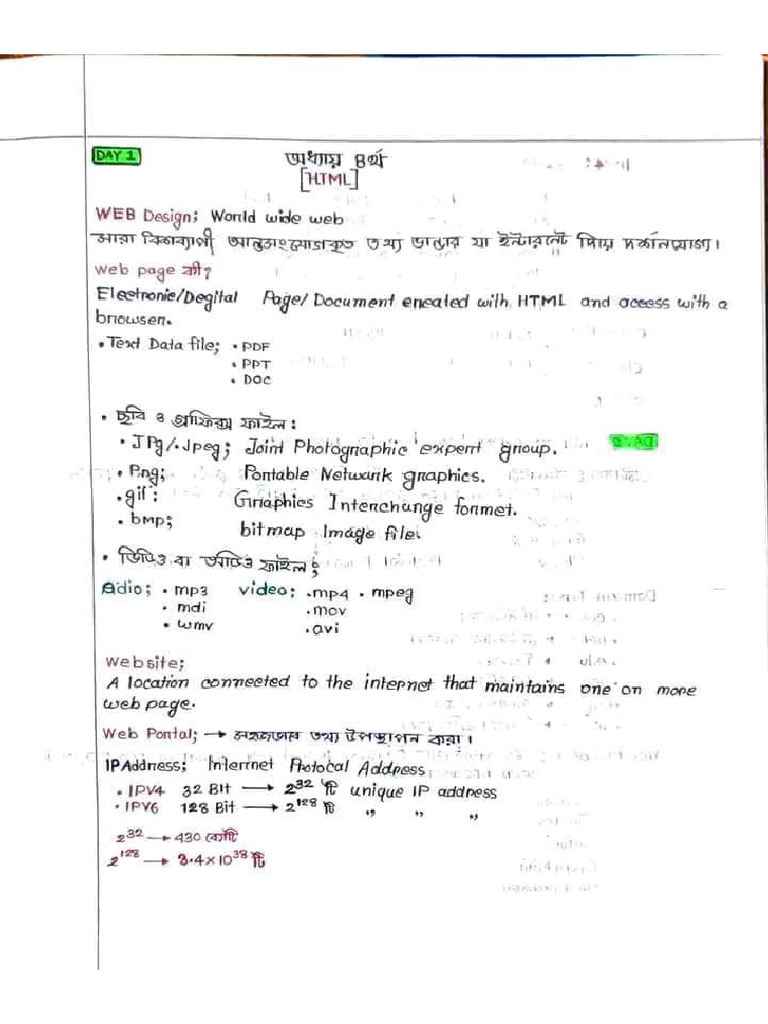 DAY 1
অধ্যায় ৪র্থ
[HTML]
WEB Design; World wide web
সারা বিশ্বব্যাপী আন্তঃসংযোগকৃত তথ্য ভান্ডার যা ইন্টারনেট দিয়ে দর্শনযোগ্য।
web page কী?
Electronic/Degital Page/Document created with HTML and access with a
browser.
• Text Data file; • PDF
• PPT
• DOC
• ছবি ও গ্রাফিক্স ফাইল:
• JPg/.Jpeg; Joint Photographic expert group.
• Png; Portable Network graphics.
• gif: Graphics Interchange formet.
• bmp; bitmap Image file.
• ভিডিও বা অডিও ফাইল;
Adio; • mp3 video; .mp4 • mpeg
• mdi .mov
• wmv .avi
Website;
A location connected to the internet that maintains one or more
web page.
Web Portal; → সহজভাবে তথ্য উপস্থাপন করা।
IP Address; Internet Protocal Address
• IPV4 32 Bit → 2³² টি unique IP address
• IPV6 128 Bit → 2¹²⁸ টি " " "
2³² → 430 কোটি
2¹²⁸ → 3.4×10³⁸ টি